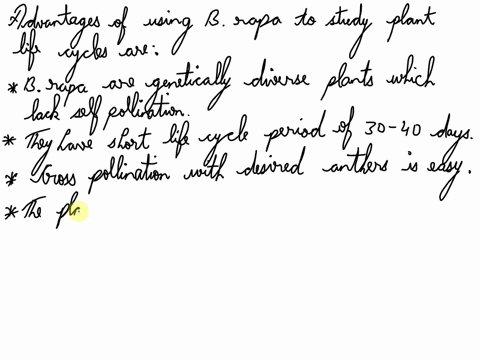 Advantages of using B. rapa to study plant
life cycles are:
* B. rapa are genetically diverse plants which
lack self pollination.
* They have short life cycle period of 30-40 days.
* Cross pollination with desired anthers is easy.
* The pl